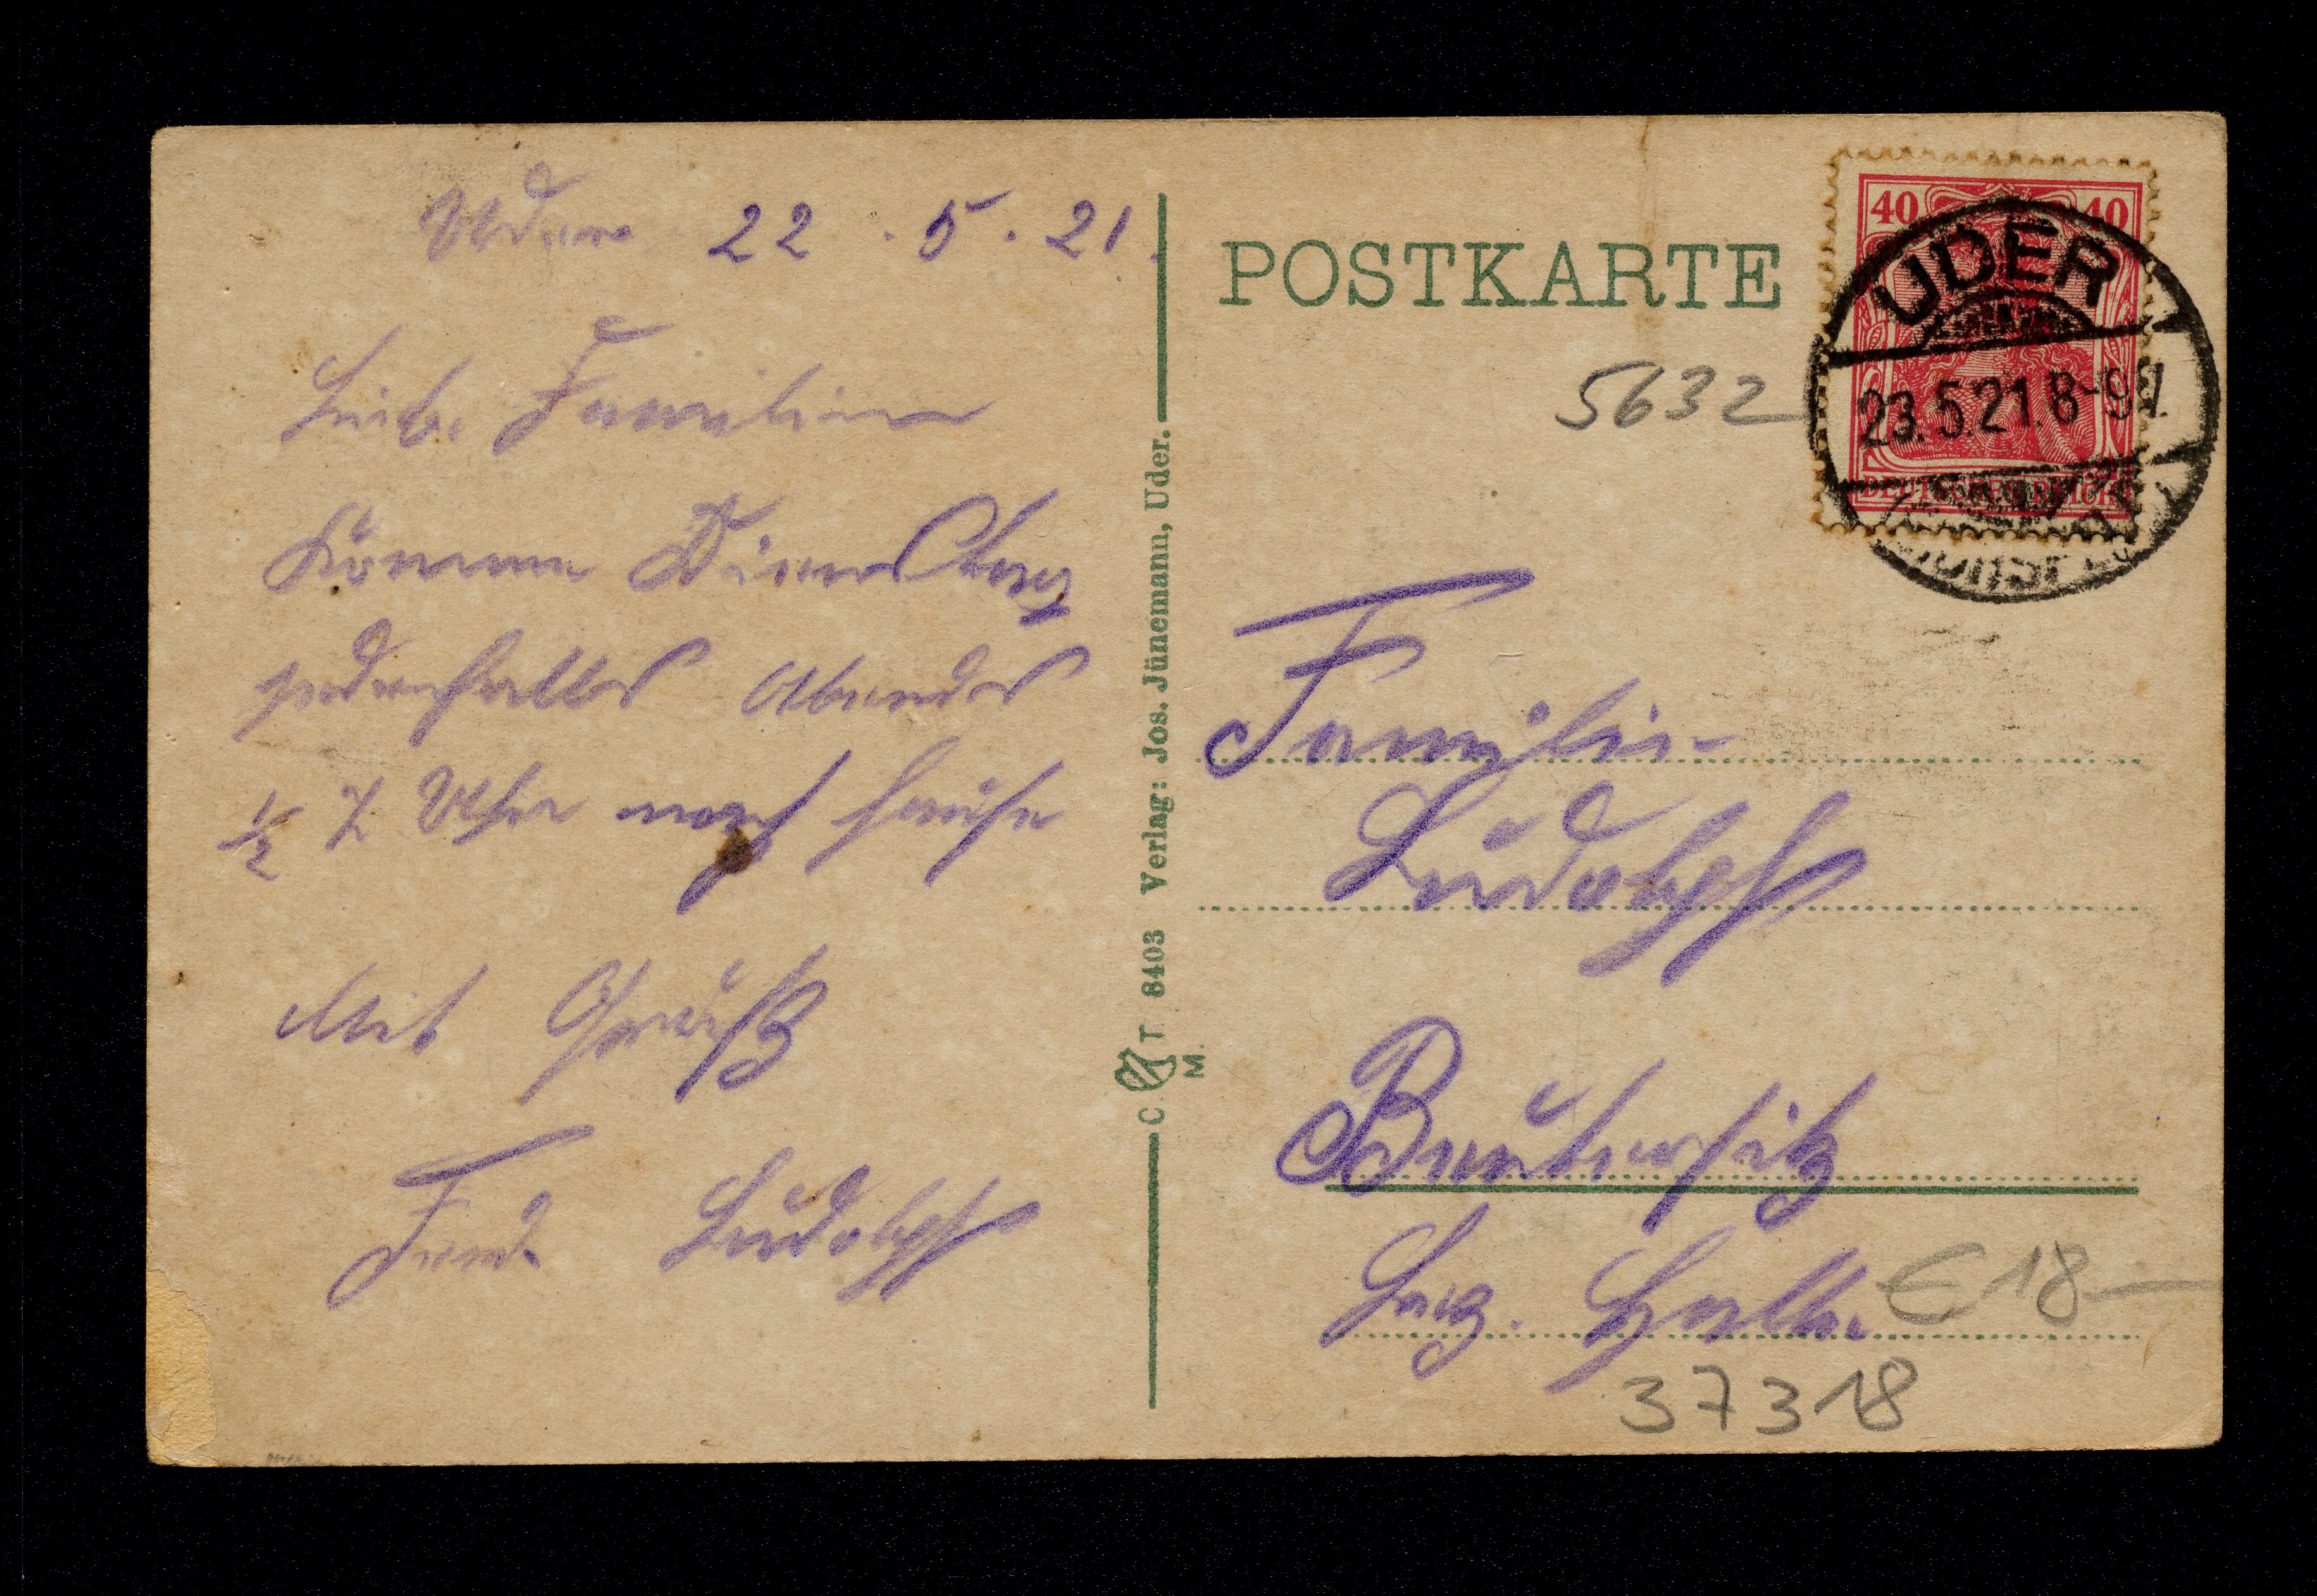 Uder 22.5.21.
Liebe Familie
Komme Dienstag
jedenfalls Abends
1/2 7 Uhr nach hause
Mit Gruß
Ferd. Ludolph
C. T. M. 8403 Verlag: Jos. Jünemann, Uder.
POSTKARTE
40 40
DEUTSCHES REICH
UDER
23.5.21.8-9V
5632
Familie
Ludolph
Beuchlitz
€ 18-
37318